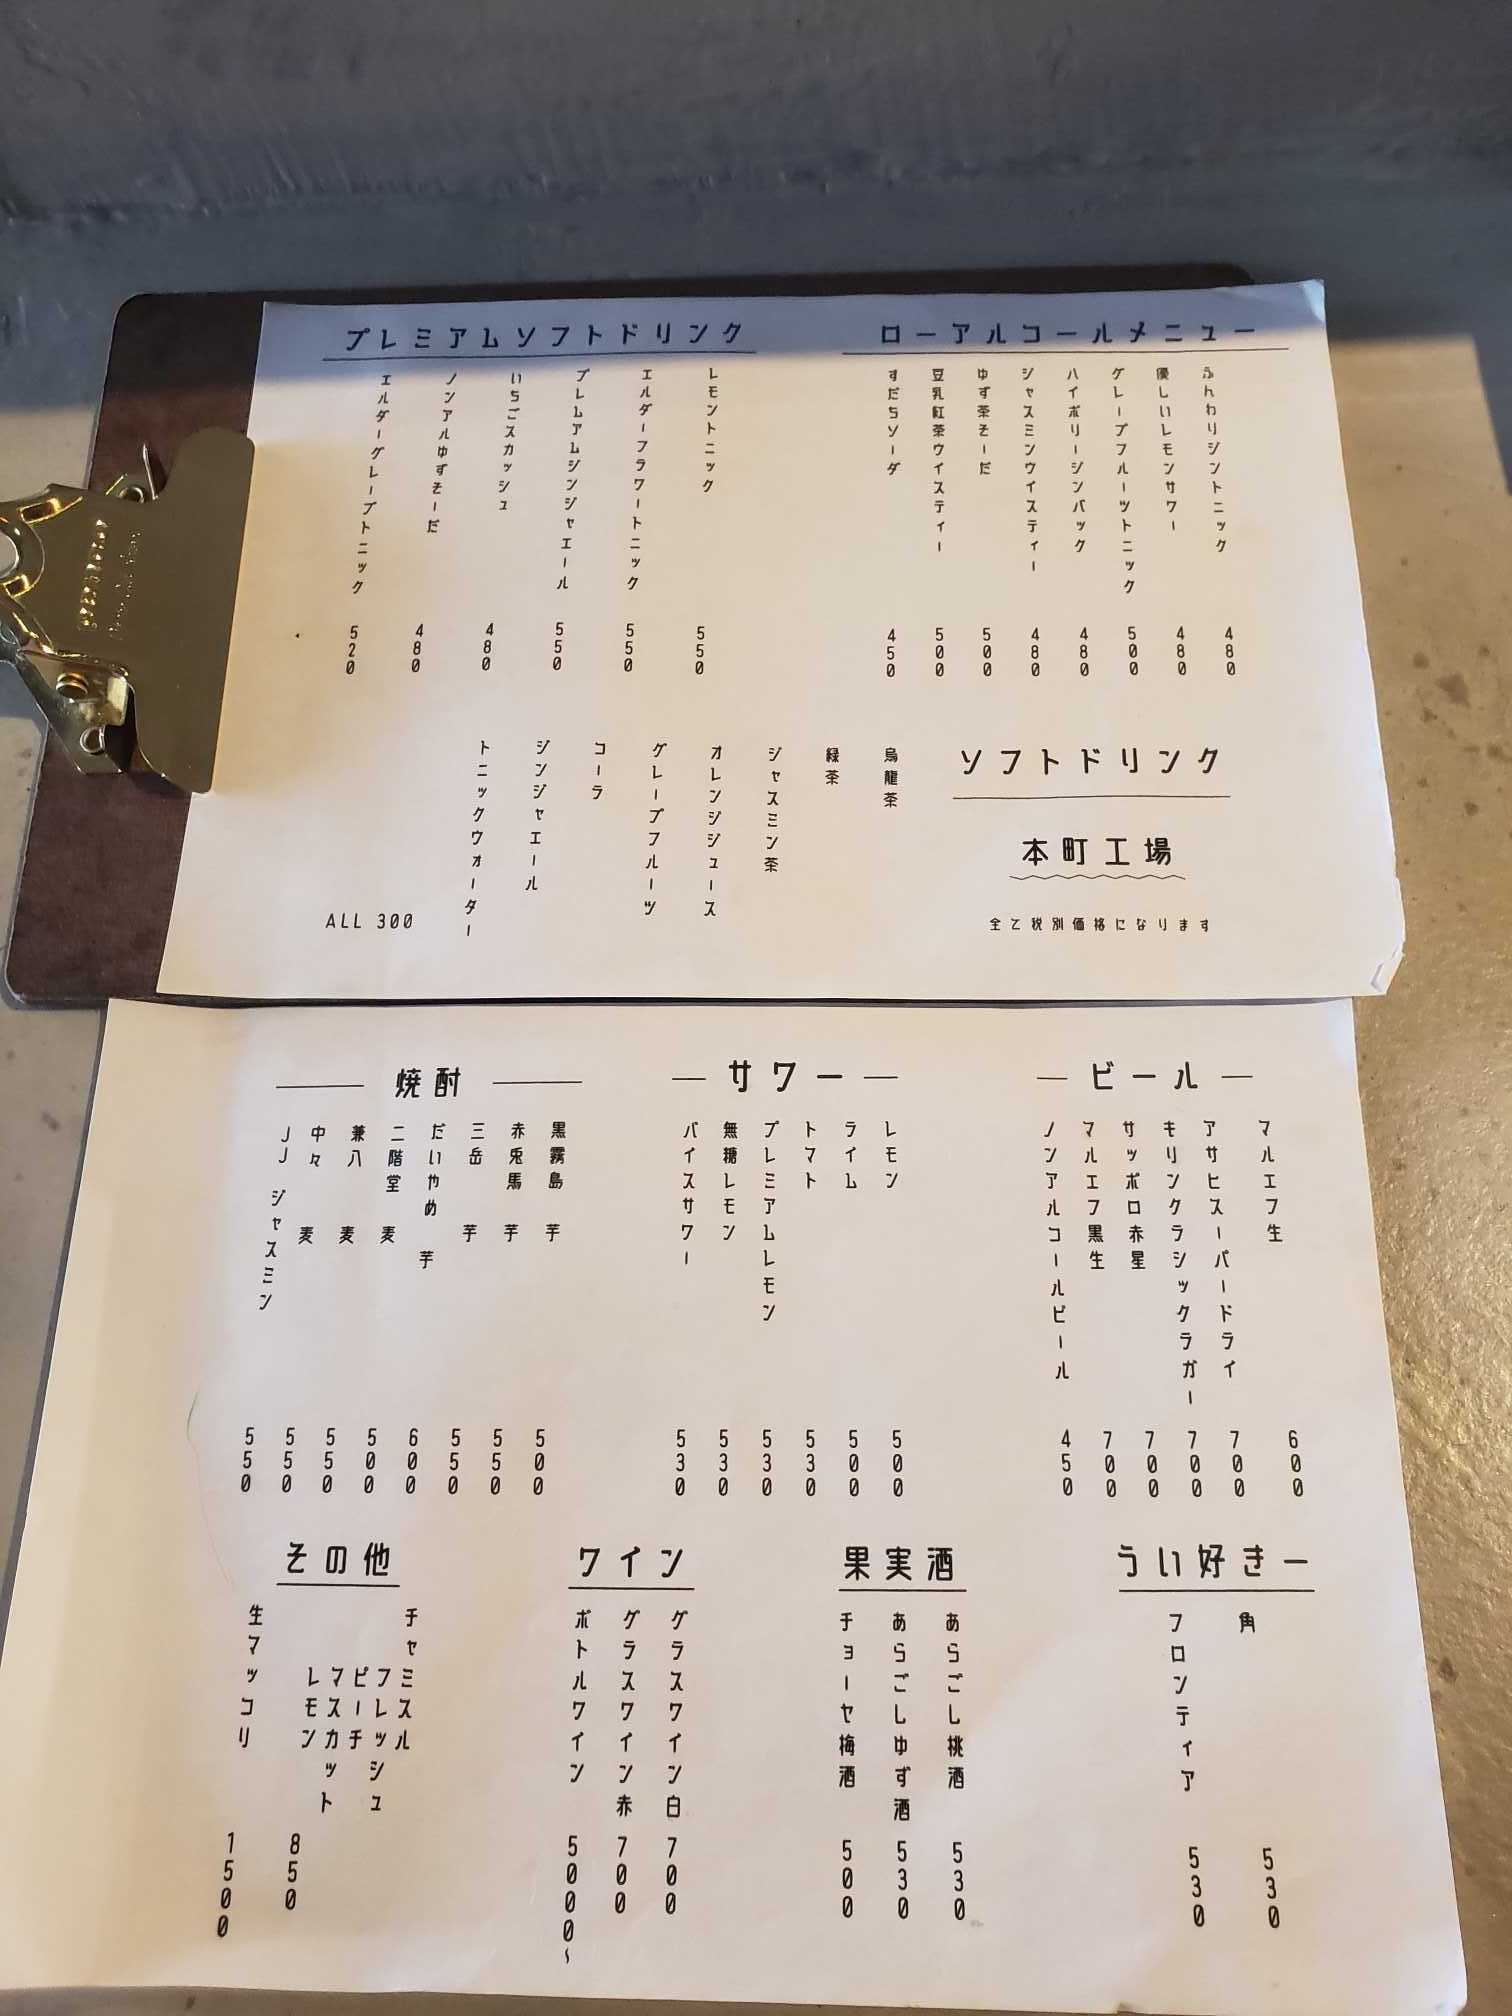 ローアルコールメニュー
ふんわりジントニック 480
優しいレモンサワー 480
グレープフルーツトニック 500
ハイボリージンバック 480
ジャスミンウイスティー 480
ゆず茶そーだ 500
豆乳紅茶ウイスティー 500
すだちソーダ 450
プレミアムソフトドリンク
レモントニック 550
エルダーフラワートニック 550
プレムアムジンジャエール 550
いちごスカッシュ 480
ノンアルゆずそーだ 480
エルダーグレープトニック 520
ソフトドリンク
烏龍茶
緑茶
ジャスミン茶
オレンジジュース
グレープフルーツ
コーラ
ジンジャエール
トニックウォーター
ALL 300
本町工場
全て税別価格になります
ビール
マルエフ生 600
アサヒスーパードライ 700
キリンクラシックラガー 700
サッポロ赤星 700
マルエフ黒生 700
ノンアルコールビール 450
サワー
レモン 500
ライム 500
トマト 530
プレミアムレモン 530
無糖レモン 530
バイスサワー 530
焼酎
黒霧島 芋 500
赤兎馬 芋 550
三岳 芋 550
だいやめ 芋 600
二階堂 麦 500
兼八 麦 550
中々 麦 550
JJ ジャスミン 550
うい好きー
角 530
フロンティア 530
果実酒
あらごし桃酒 530
あらごしゆず酒 530
チョーヤ梅酒 500
ワイン
グラスワイン白 700
グラスワイン赤 700
ボトルワイン 5000~
その他
チャミスル
フレッシュ
ピーチ
マスカット
レモン
850
生マッコリ 1500